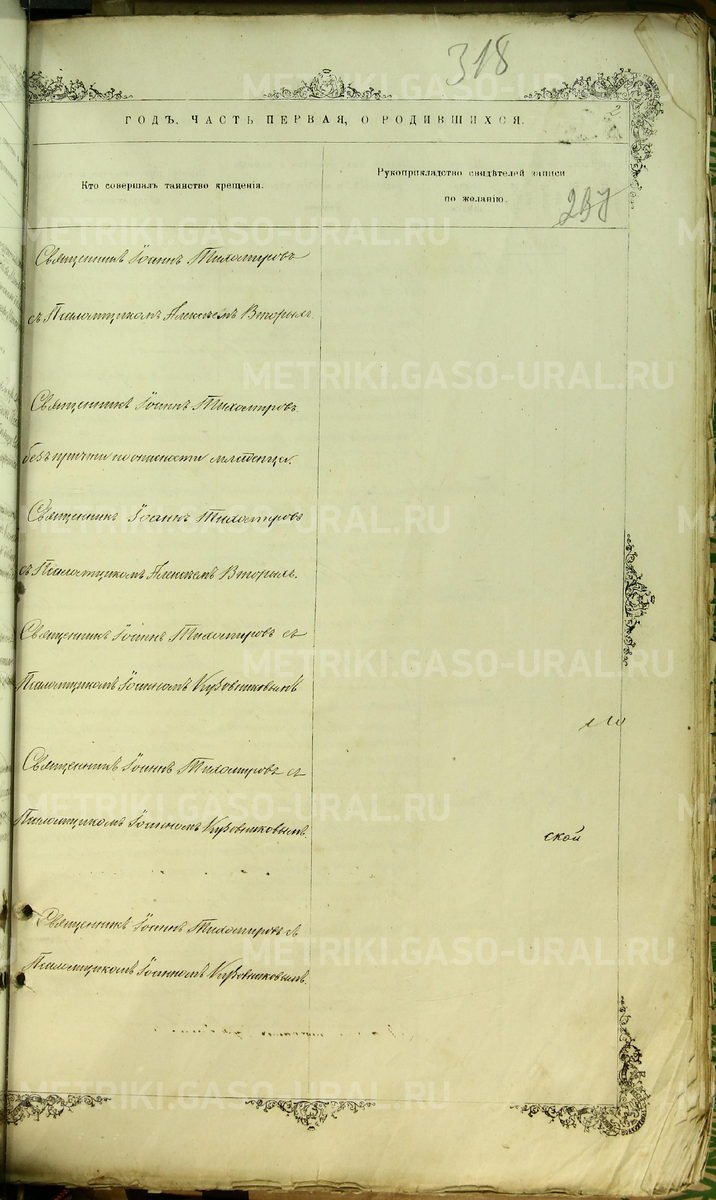 318
ГОДЪ, ЧАСТЬ ПЕРВАЯ, О РОДИВШИХСЯ.
2
Кто совершалъ таинство крещенія.
Рукоприкладство свидѣтелей записи
по желанію.
Священникъ Іоаннъ Тихомировъ
съ Псаломщикомъ Алексѣемъ Вторыхъ.
Священникъ Іоаннъ Тихомировъ
безъ причта по опасности младенца.
Священникъ Іоаннъ Тихомировъ
съ Псаломщикомъ Алексѣемъ Вторыхъ.
Священникъ Іоаннъ Тихомировъ съ
Псаломщикомъ Іоанномъ Кузовниковымъ
Священникъ Іоаннъ Тихомировъ съ
Псаломщикомъ Іоанномъ Кузовниковымъ
ской
Священникъ Іоаннъ Тихомировъ съ
Псаломщикомъ Іоанномъ Кузовниковымъ.
METRIKI.GASO-URAL.RU